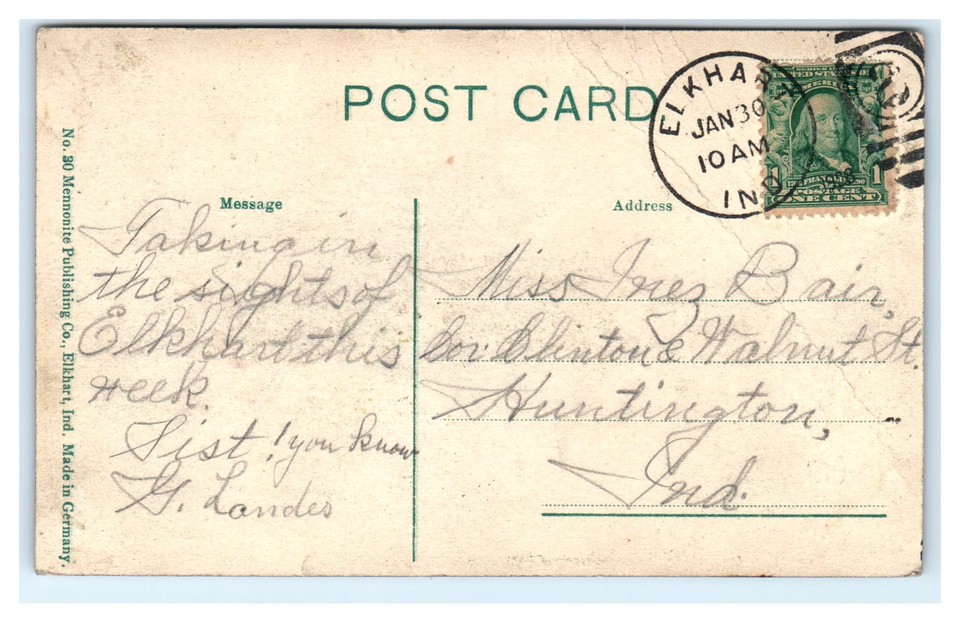 POST CARD
ELKHAR
JAN 30
10 AM
IND
SERIES
UNITED STATES OF
AMERICA
FRANKLIN
1 1
POSTAGE
ONE CENT
No. 30 Mennonite Publishing Co., Elkhart, Ind. Made in Germany.
Message
Taking in
the sights of
Elkhart this
week.
Sist! you know
G. Landes
Address
Miss Inez Bair,
Cor. Clinton & Walnut St.
Huntington,
Ind.